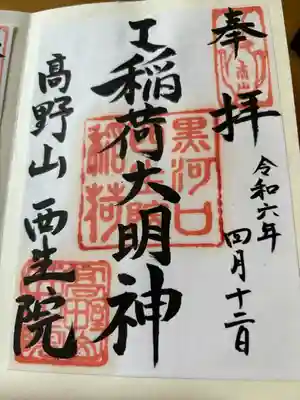 奉拝
令和六年
四月十二日
工稲荷大明神
高野山 西生院
黒河口
稲荷